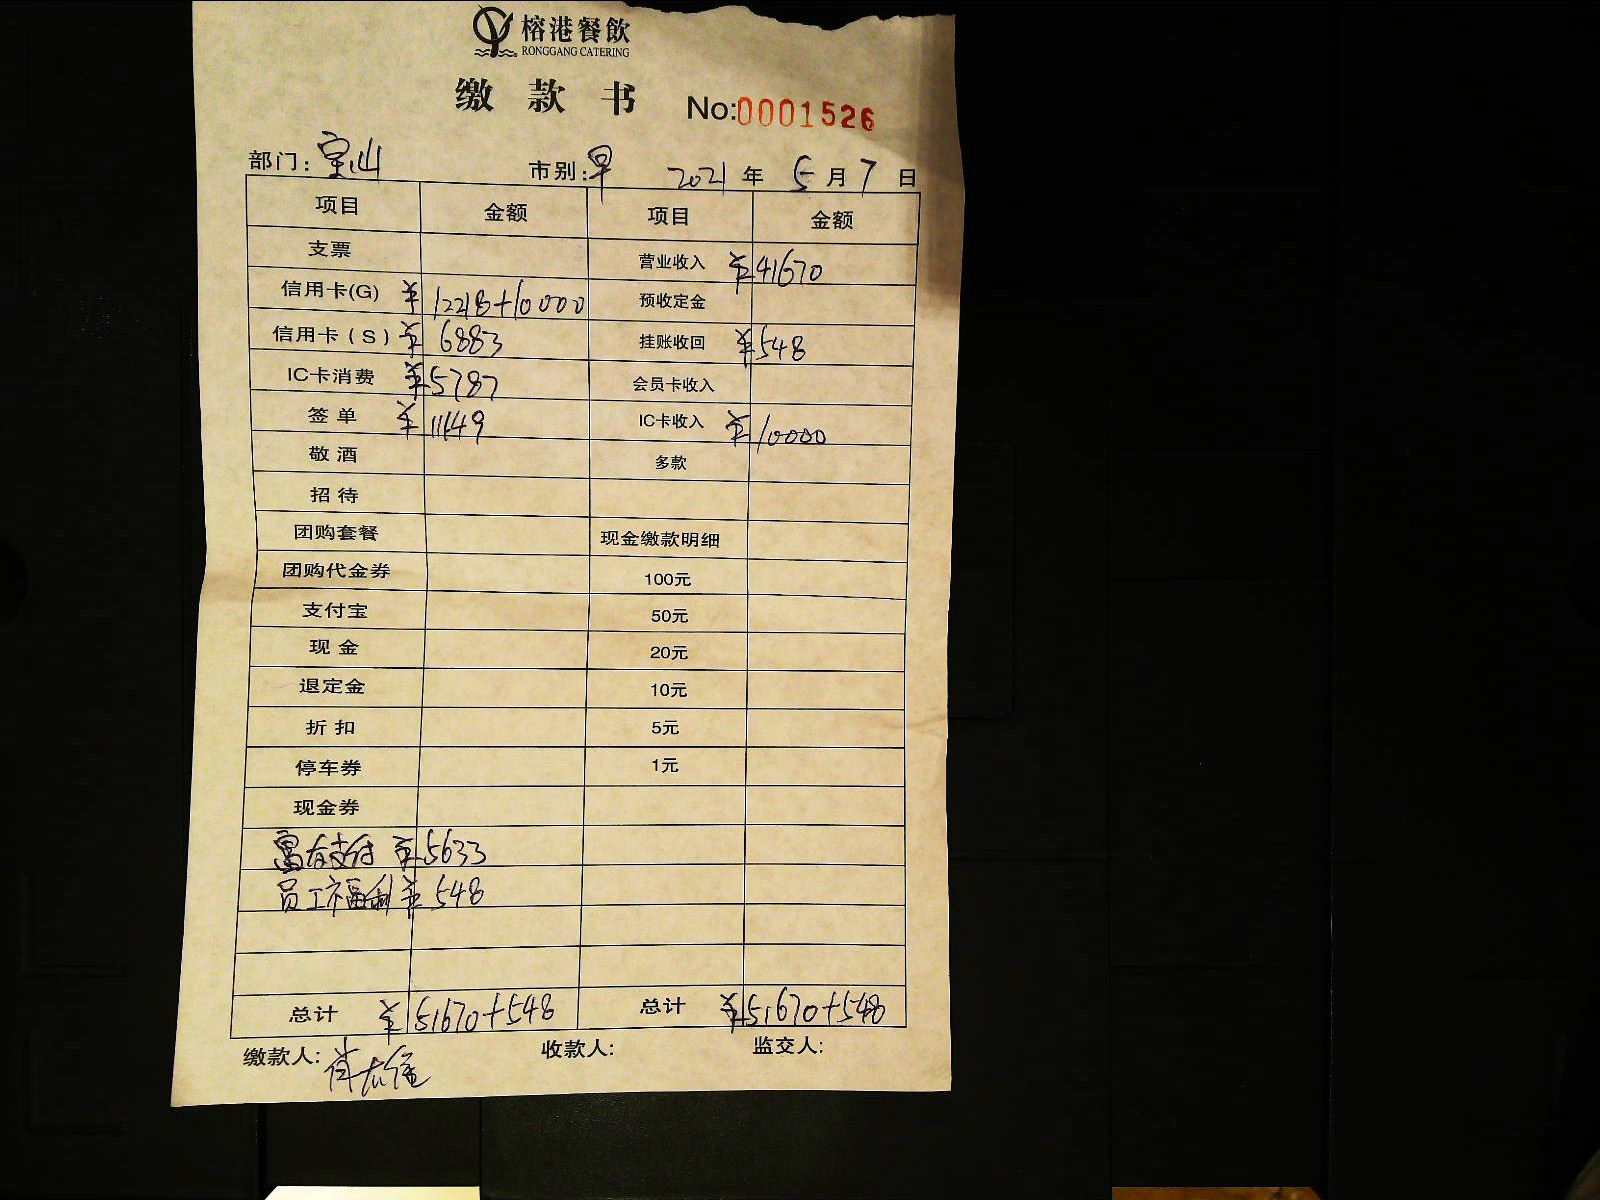 榕港餐飲
RONGGANG CATERING
缴款书 No:0001526
部门:宝山 市别:早 2021年5月7日
项目 金额 项目 金额
支票 营业收入 ¥41670
信用卡(G) ¥12218+10000 预收定金
信用卡(S) ¥6883 挂账收回 ¥548
IC卡消费 ¥5787 会员卡收入
签单 ¥11149 IC卡收入 ¥10000
敬酒 多款
招待
团购套餐 现金缴款明细
团购代金券 100元
支付宝 50元
现金 20元
退定金 10元
折扣 5元
停车券 1元
现金券
富友支付 ¥5633
员工福利 ¥548
总计 ¥51670+548 总计 ¥51670+548
缴款人: 收款人: 监交人: